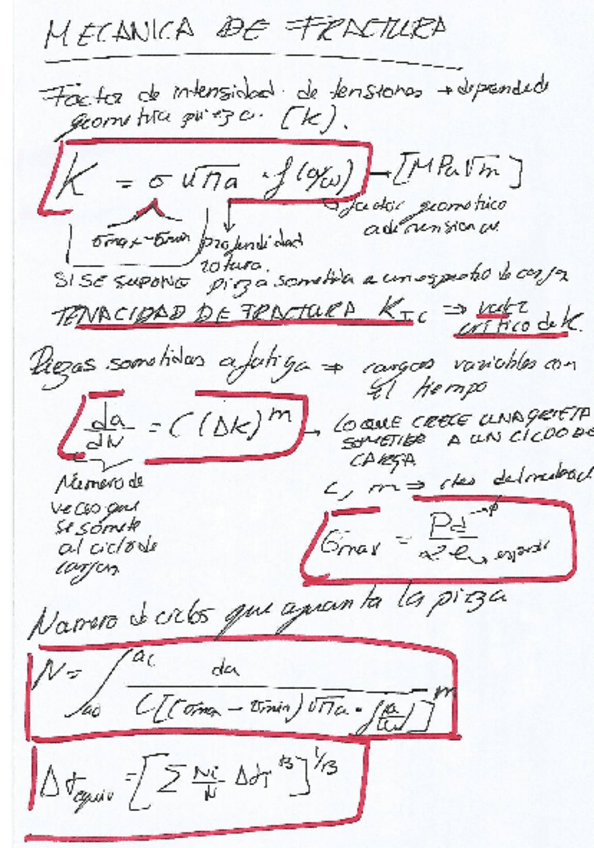 MECANICA DE FRACTURA
Factor de intensidad de tensiones → depende de
geometria pieza. [K].
K = σ √πa · f(a/w) → [MPa√m]
factor geometrico
adimensional
σmax - σmin
profundidad
rotura.
SI SE SUPONE pieza sometida a un espectro de carga
TENACIDAD DE FRACTURA KIC ⇒ valor
crítico de K.
Piezas sometidas a fatiga ⇒ cargas variables con
el tiempo
da/dN = C(ΔK)^m → LO QUE CRECE UNA GRIETA
SOMETIDA A UN CICLO DE
CARGA
Numero de
veces que
se somete
al ciclo de
carga
C, m ⇒ ctes del material
σmax = Pd/2e → φ
↳ espesor
Numero de ciclos que aguanta la pieza
N = ∫_{a0}^{ac} da / C[(σmax - σmin)√πa · f(a/w)]^m
Δσequiv = [Σ Ni/N Δσi^β]^{1/β}